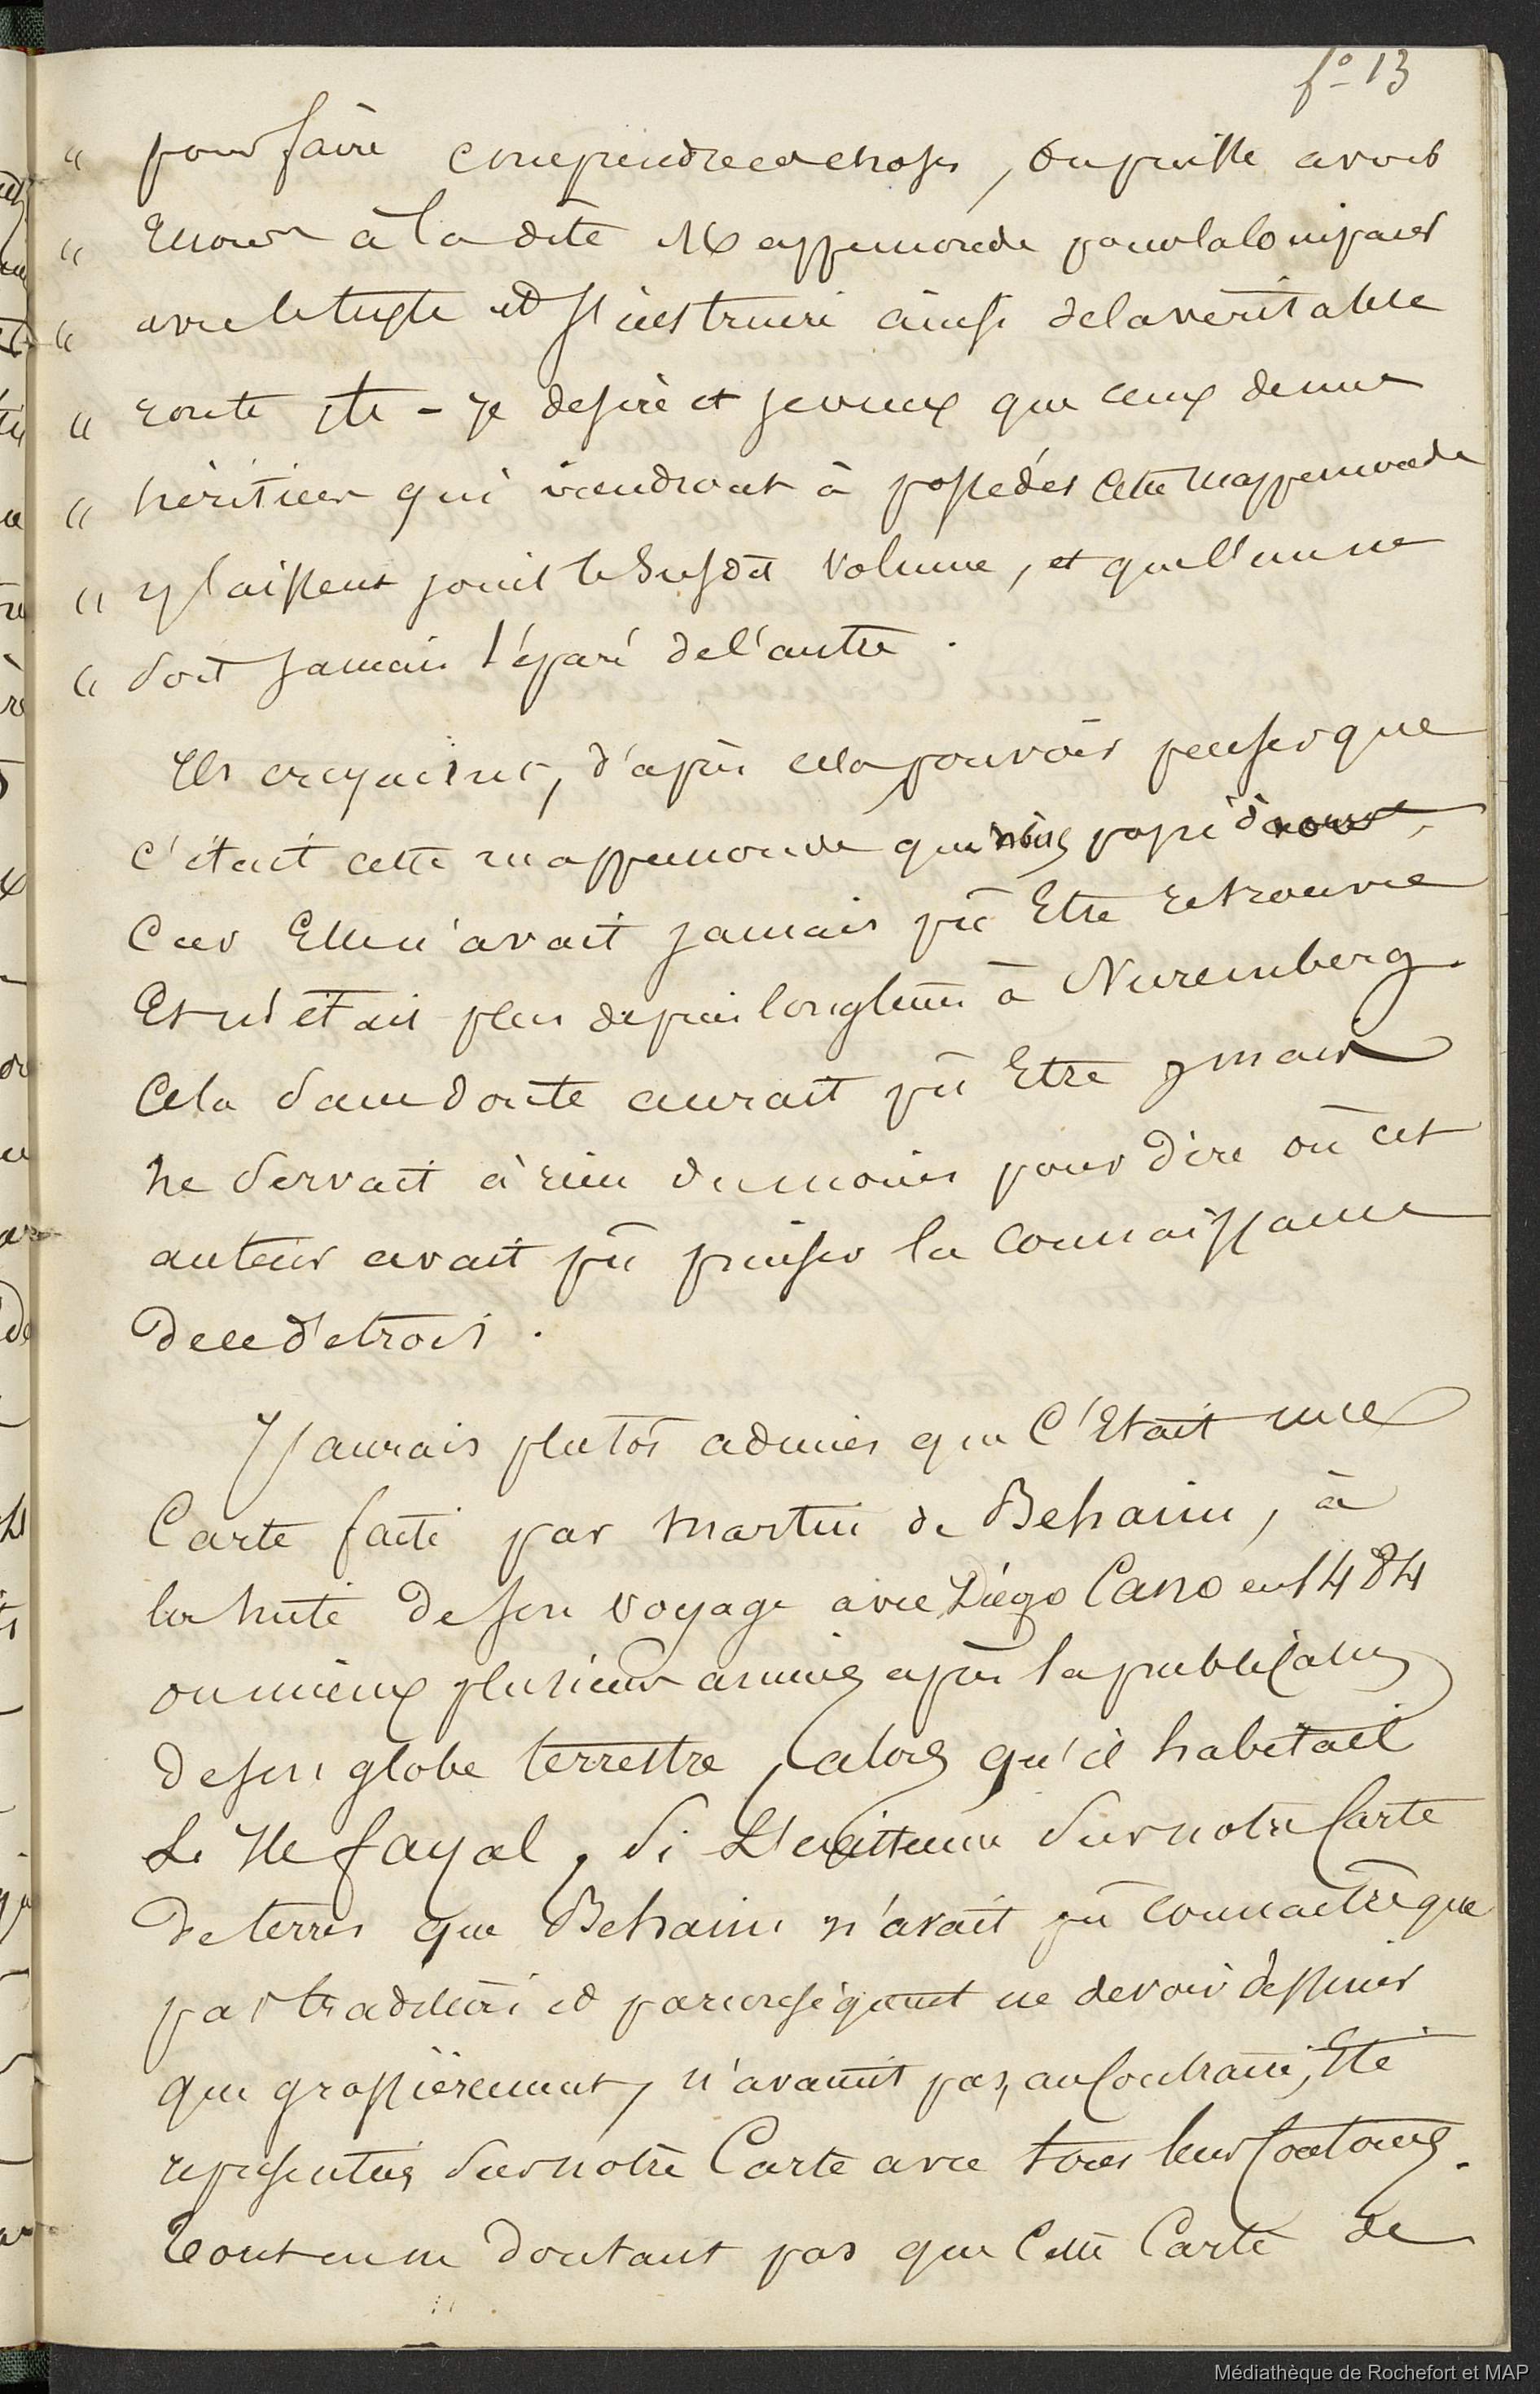 fo 13
" pour faire comprendre ces choses, on puisse avoir
" recours à la dite Mappemonde pour la comparer
" avec le texte et s'instruire ainsi de la véritable
" route etc - Je desire et je veux que ceux de mes
" héritiers qui viendront à posséder cette mappemonde
" y laissent joint le susdit volume, et que l'un ne
" soit jamais séparé de l'autre.
Ils croyaient, d'après cela pouvoir penser que
c'était cette mappemonde que nous
Car Elle n'avait jamais pû Etre retrouvée
Et n'était plus depuis longtems à Nuremberg.
Cela sans doute aurait pû Etre mais
ne servait à rien du moins pour dire où cet
auteur avait pû puiser la connaissance
de ce détroit.
J'aurais plutôt admis que C'Etait une
Carte faite par Martin de Behaim, à
la suite de son voyage avec Diégo Cano en 1484
ou mieux plusieurs années après la publication
de son globe terrestre, alors qu'il habitait
L'Ile fayal, si L'existence sur notre Carte
de terres que Behaim n'avait pû connaitre que
par tradition et par conséquent ne devoir dessiner
que grossièrement, n'avaient pas, au Contraire, Eté
représentées sur notre Carte avec tous leurs Contours.
Tout en ne doutant pas que Cette Carte de
Médiathèque de Rochefort et MAP